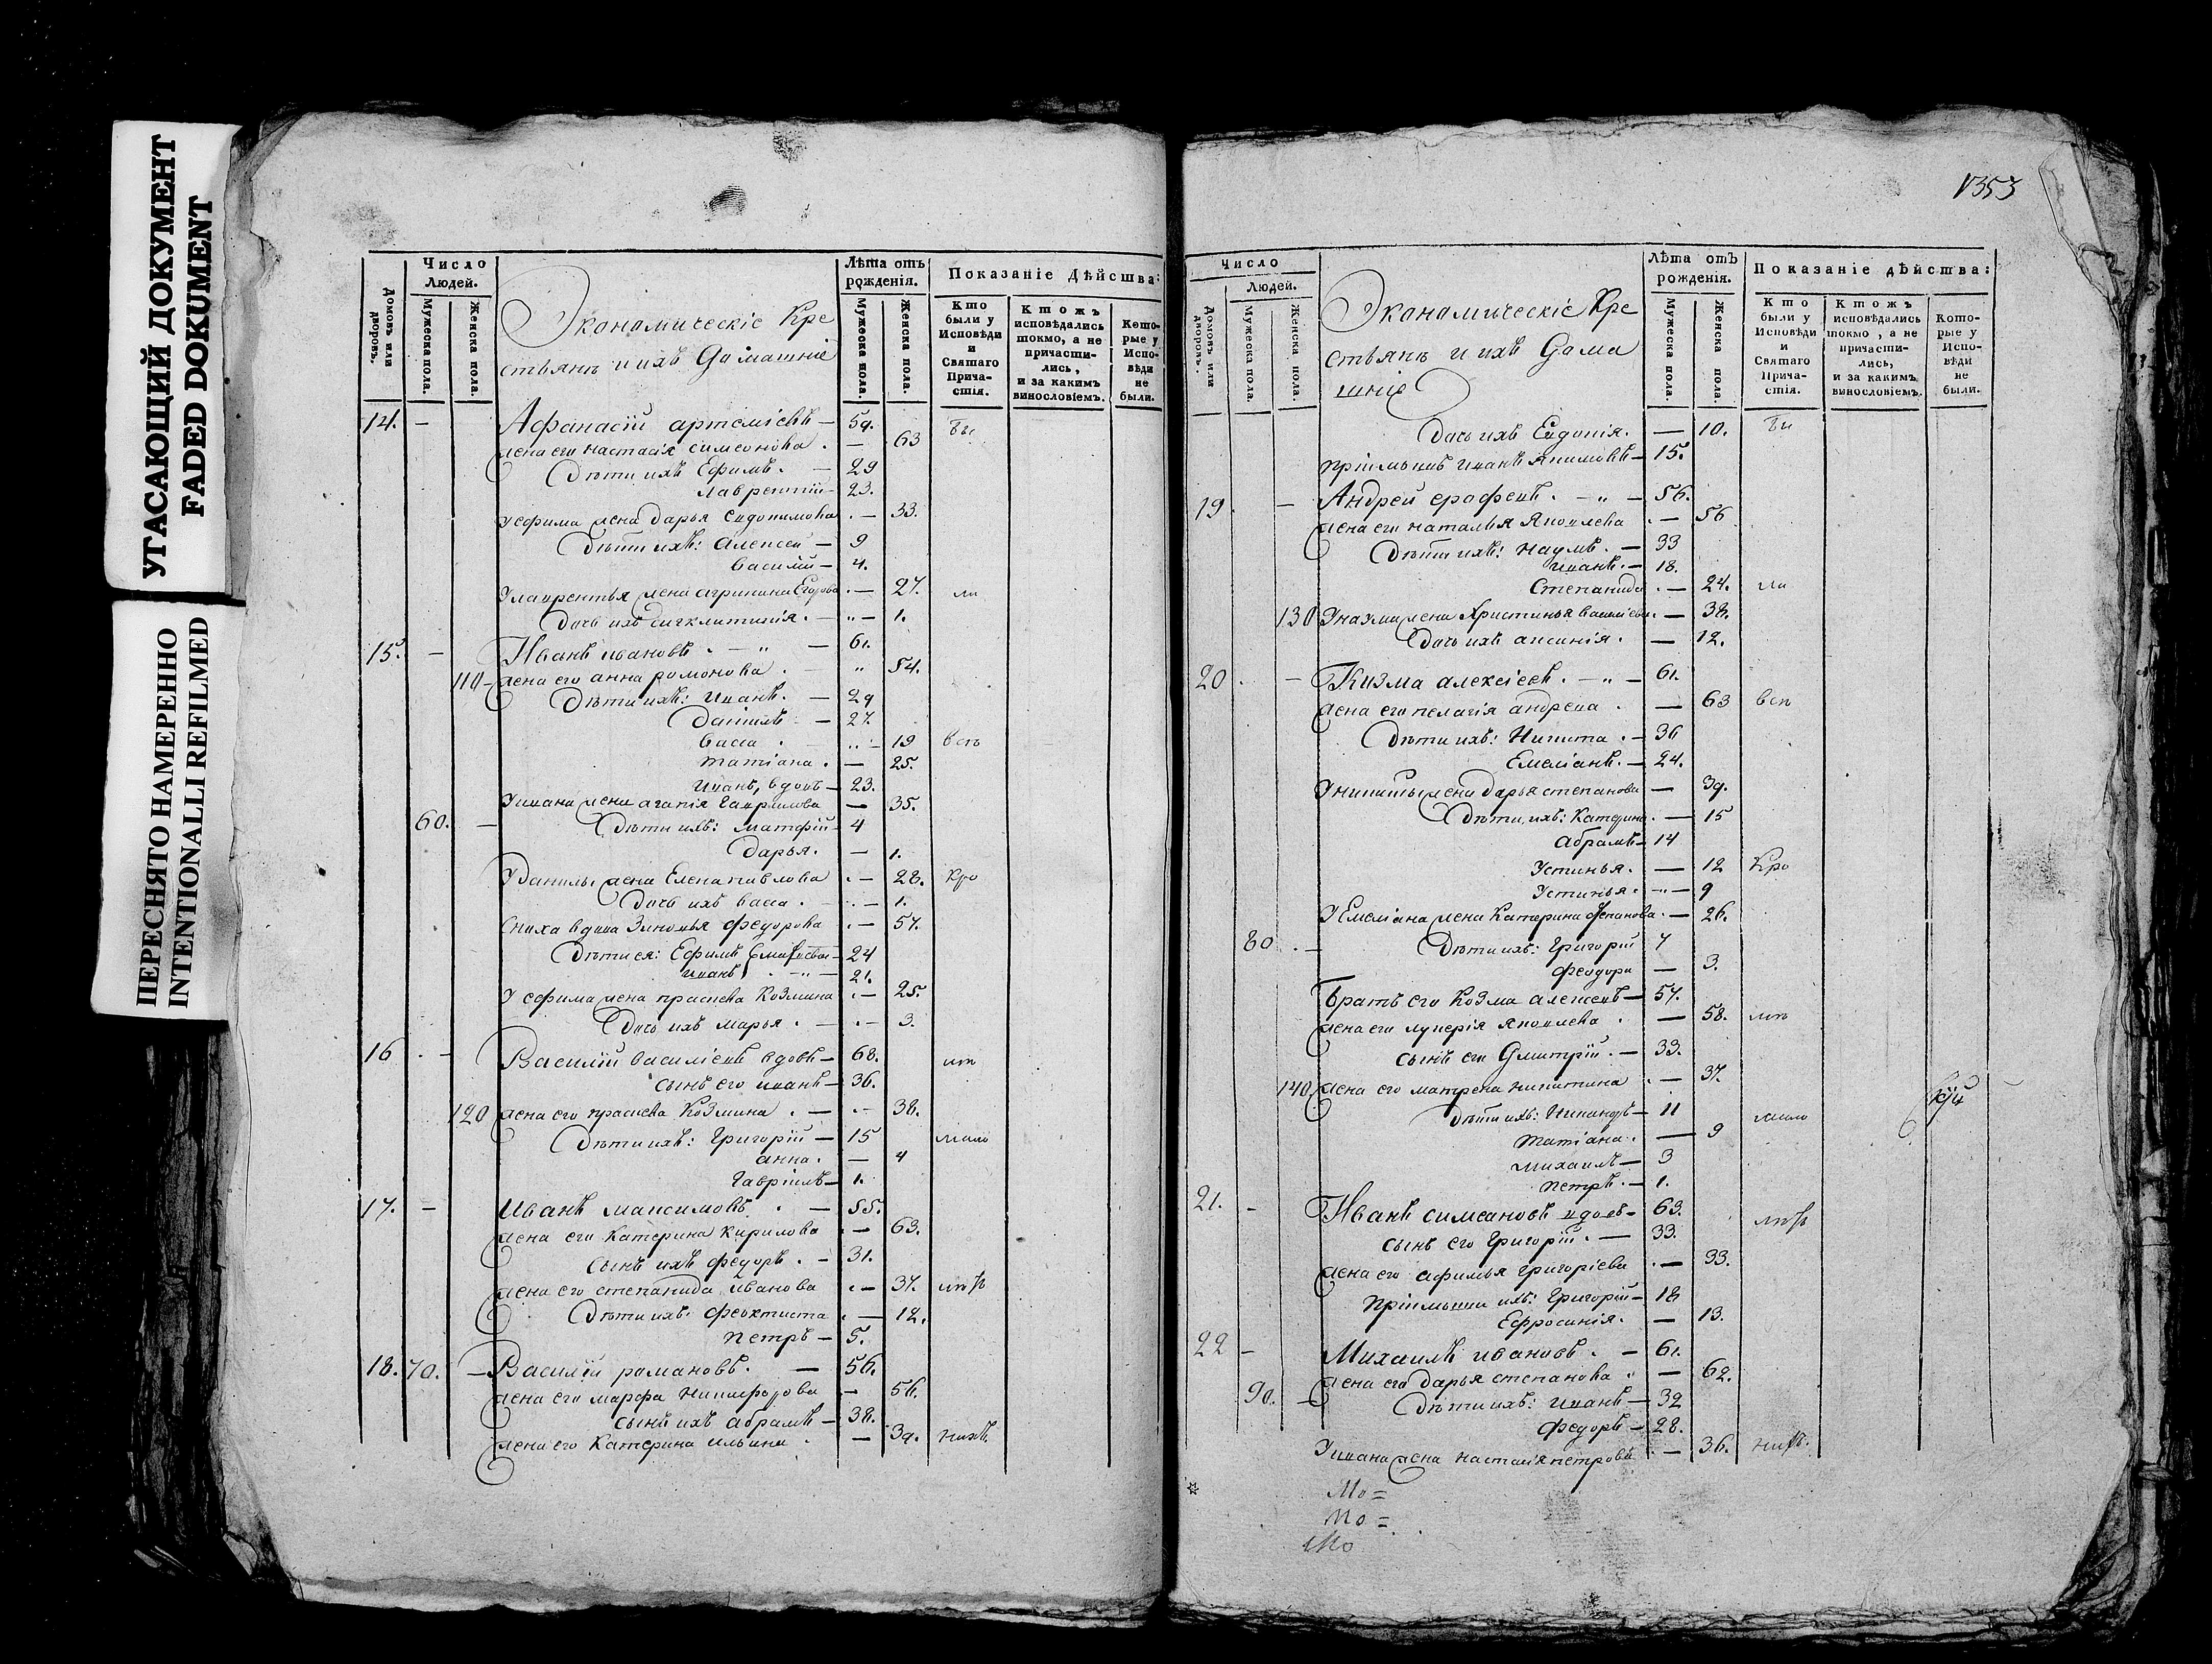 УГАСАЮЩИЙ ДОКУМЕНТ
FADED DOKUMENT
ПЕРЕСНЯТО НАМЕРЕННО
INTENTIONALLI REFILMED
Домовъ или дворовъ.
Число Людей.
Мужеска пола.
Женска пола.
Экономическіе Кре
стьянъ и ихъ Домашніе
Лѣта отъ рожденія.
Мужеска пола.
Женска пола.
Показаніе Дѣйства:
Кто были у Исповѣди и Святаго Причастія.
Ктожъ исповѣдались токмо, а не причастились, и за какимъ винословіемъ.
Которые у Исповѣди не были.
14. — Афанасій артеміевъ — 59. бы
жена его настасія симеонова . — 63
Дѣти ихъ Ефимъ . — 29
лаврентій — 23.
У ефима жена дарья Евдокимова . — 33.
Дѣти ихъ: алексей — 9
василій — 4.
У лаврентья жена агрипина Егорова . — 27. ли
Дочь ихъ сигклитикія . — 1.
15. — Иванъ ивановъ . — „ — 61.
110 — жена его анна романова . „ 54.
Дѣти ихъ: иванъ . — 29
Даніилъ — 27.
васса . — 19 всѣ
татіана . — 25.
иванъ, вдовъ — 23.
У ивана жена агапія гаврилова — 35.
60. — Дѣти ихъ: матфій — 4
Дарья . — 1.
У данилы жена Елена павлова . — 28. Кро
Дочь ихъ васса . — 1.
сноха вдова Зиновья федорова . — 57.
Дѣти ея: Ефимъ — 24
иванъ . — „ — 21.
У ефима жена прасковa Козмина . — 25.
Дочь ихъ марья . — . — 3.
16 . — Василій василіевъ вдовъ — 68. мѣ
сынъ его иванъ — 36.
120 жена его прасковa Козмина . — . — 38.
Дѣти ихъ: Григорій — 15 мало
анна . — 4
Гавріилъ — 1.
17. — Иванъ максимовъ . — 55.
жена его Катерина Кирилова . — 63.
сынъ ихъ федоръ . — 31.
жена его степанида иванова . — 37.
Дѣти ихъ: феоктиста . — 12.
петръ — 5.
18. 70. — Василій романовъ . — 56.
жена его марфа Никифорова — 56.
сынъ ихъ абрамъ — 38.
жена его Катерина ильина . — 39. нихъ.
1353
Число Людей.
Домовъ или дворовъ.
Мужеска пола.
Женска пола.
Экономическіе Кре
стьянъ и ихъ Дома
шніе
Лѣта отъ рожденія.
Мужеска пола.
Женска пола.
Показаніе дѣйства:
Кто были у Исповѣди и Святаго Причастія.
Ктожъ исповѣдались токмо, а не причастились, и за какимъ винословіемъ.
Которые у Исповѣди не были.
Дочь ихъ Евдокія . — 10. бы
пріимышъ иванъ — 15.
19 . — Андрей ерофеевъ . — „ — 56.
жена его наталья Яковлева . — 56
Дѣти ихъ: наумъ . — 33
иванъ . — 18.
Степанида . — 24. ли
130 У наума жена Христинья васильева . — 38.
Дочь ихъ аксинія . — 12.
20 . — Козма алексіевъ . — „ — 61.
жена его пелагія андреева . — 63 всѣ
Дѣти ихъ: Никита . — 36
Емеліанъ . — 24.
У никиты жена дарья степанова — 39.
Дѣти ихъ: Катерина . — 15
абрамъ — 14
Устинья . — 12 Кро
Устинья . — 9
У Емеліана жена Катерина степанова . — 26.
80 . — Дѣти ихъ: Григорій 7
феодора — 3.
Братъ его Козма алексеевъ — 57.
жена его лукерія Яковлева . — 58. мѣ
сынъ его Дмитрій . — 33.
140. жена его матрена никитина . — 37.
Дѣти ихъ: Никаноръ — 11 мало
татіана . — 9
михаилъ — 3
петръ . — 1.
21. — Иванъ симеоновъ вдовъ — 63.
сынъ его Григорій . — 33.
жена его афимья Григоріева . — 33.
Пріимыши ихъ: Григорій — 18
Ефросинія . — 13.
22 — Михаилъ ивановъ . — 61.
жена его дарья степанова . — 62.
90. — Дѣти ихъ: иванъ — 32
федоръ — 28.
У ивана жена настасія петрова . — 36. нихъ.
Мо =
Мо =
Мо